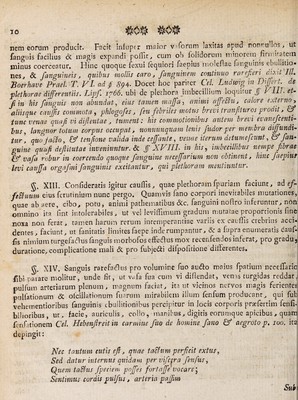 10
nem eorum producit. Facit insuper maior vasorum laxitas apud nonnullos, ut
sanguis facilius & magis expandi possit, cum ob solidorum minorem firmitatem
minus coerceatur. Hinc quoque laxi sequiori saepius molestae sanguinis ebullitio-
nes, & sanguineis, quibus mollis caro, sanguinem continuo rarefieri dixit Ill.
Boerhave Prael. T. VI. ad § 894. Docet hoc pariter Cel. Ludwig in Dissert. de
plethorae differentiis. Lips. 1766. ubi de plethora imbecillium loquitur § VIII. et-
si in his sanguis non abundat, eius tamen massa, animi affectu, calore externo,
aliisque caussis commota, phlogosis, seu febrilis motus brevi transiturus prodit, &
tunc venae quasi et distentae, tument: his commotionibus autem brevi evanescenti-
bus, languor totum corpus occupat, nonnunquam lenis sudor per membra diffundi-
tur, quo facto, & tensione valida inde cessante, venae iterum detumescunt, & san-
guine quasi destitutae inveniuntur. & § XVIII. in his, imbecillibus nempe fibrae
& vasa robur in coercendo quoque sanguine necessarium non obtinent, hinc saepius
levi caussa orgasmi sanguinis excitantur, qui plethoram mentiuntur.
§. XIII. Consideratis igitur caussis, quae plethoram spuriam faciunt, ad ef-
fectuum eius scrutinium nunc pergo. Quamvis sano corpori inevitabiles mutationes,
quae ab aere, cibo, potu, animi pathematibus &c. sanguini nostro inferuntur, non
omnino ita sint intolerabiles, ut vel levissimum gradum mutatae proportionis sine
noxa non ferat, tamen harum rerum intemperantius variis ex caussis crebrius acci-
dentes, faciunt, ut sanitatis limites saepe inde rumpantur, & a supra enumeratis caus-
sis nimium turgefactus sanguis morbosos effectus mox recensendos inferat, pro gradu,
duratione, complicatione mali & pro subjecti dispositione differentes.
§. XIV. Sanguis rarefactus pro volumine suo aucto maius spatium necessario
sibi parare molitur, unde fit, ut vasa sua cum vi distendat, vena turgida reddat,
pulsum arteriarum plenum, magnum faciat, ita ut vicinos nervos magis ferientes
pulsationum & oscillationum suarum mirabilem illum sensum producant, qui sub
vehementioribus sanguinis ebullitionibus percipitur in locis corporis praesertim sensi-
bilioribus, ut, facie, auriculis, collo, manibus, digitis eorumque apicibus, quam
sensationem Cel. Hebenstreit in carmine suo de homine sano & aegroto p. 100. ita
depingit:
Nec tantum cutis est, quae tactum perficit extus,
Sed datur internus quidam per viscera sensus,
Quem tactus speciem posses fortasse vocare;
Sentimus cordis pulsus, arteria passim
Sub